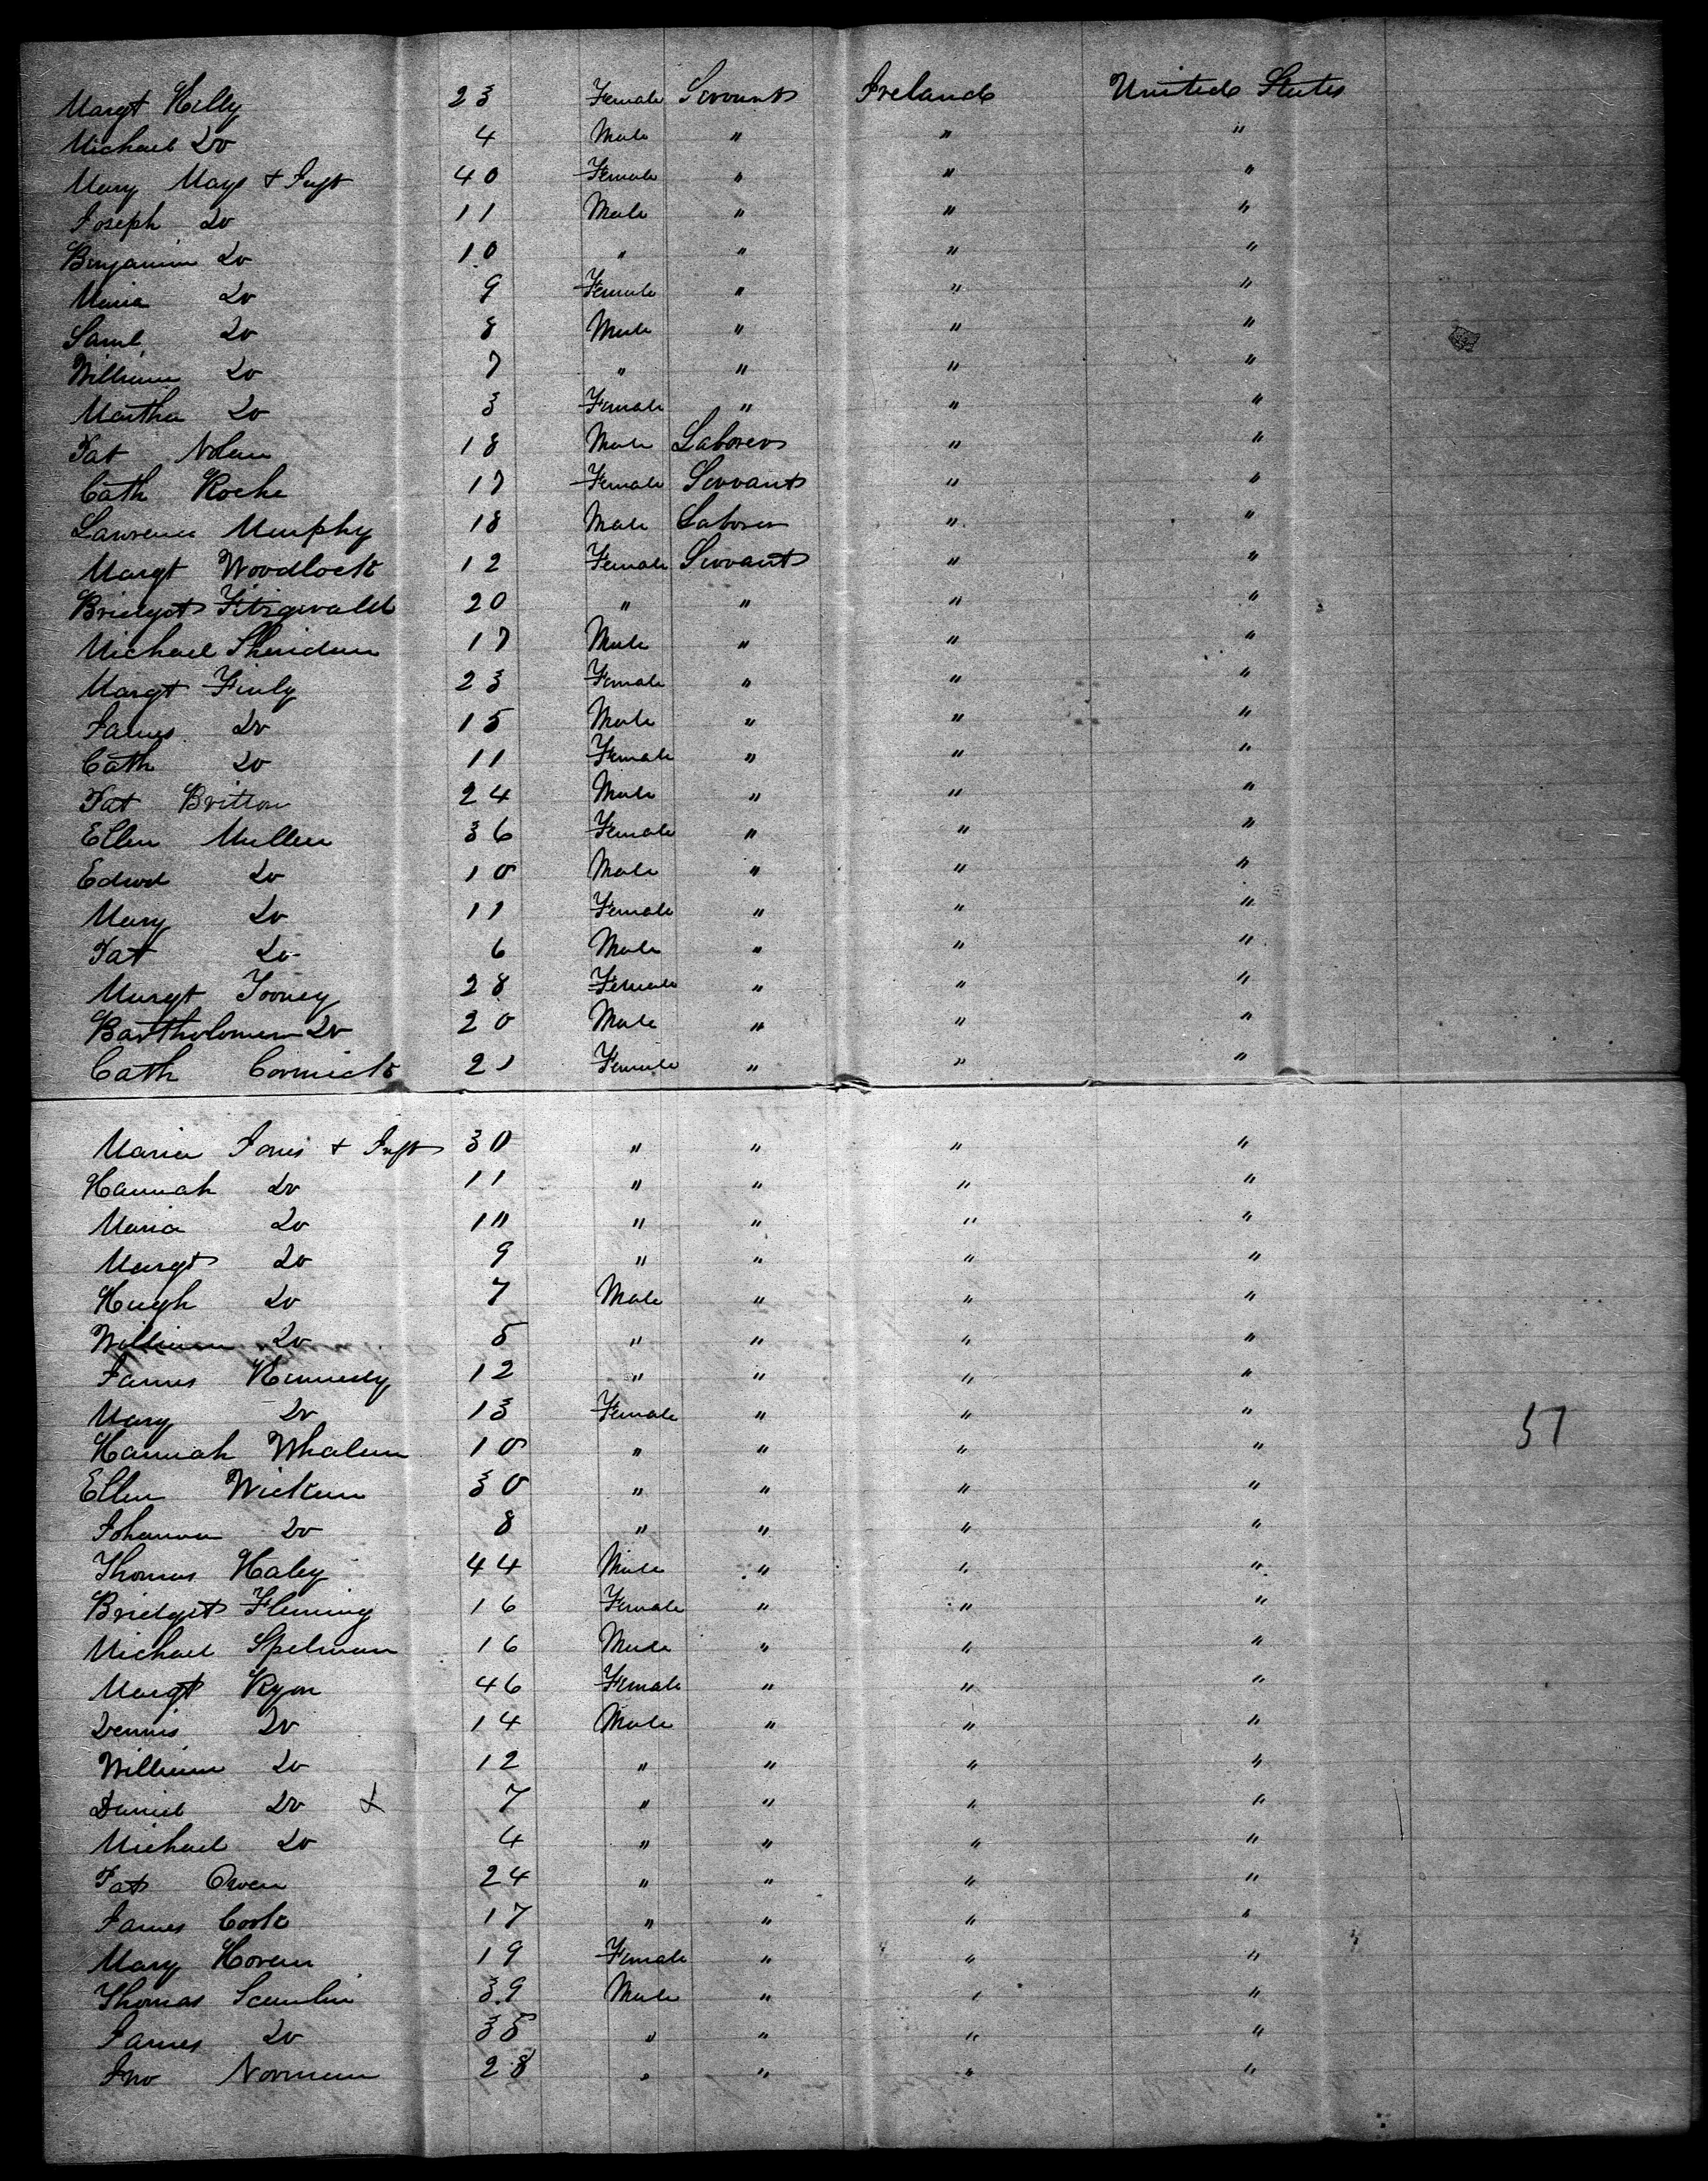 Margt Kelly 23 Female Servants Ireland United States
Michael Do 4 Male " " "
Mary Mays + Inft 40 Female " " "
Joseph Do 11 Male " " "
Benjamin Do 10 " " " "
Maria Do 9 Female " " "
Saml. Do 8 Male " " "
William Do 7 " " " "
Martha Do 3 Female " " "
Pat Nolan 18 Male Laborers " "
Cath Roche 17 Female Servants " "
Lawrence Murphy 18 Male Laborer " "
Margt Woodlock 12 Female Servants " "
Bridget Fitzgerald 20 " " " "
Michael Sheridan 17 Male " " "
Margt Finly 23 Female " " "
James Do 15 Male " " "
Cath Do 11 Female " " "
Pat Britton 24 Male " " "
Ellen Mullen 36 Female " " "
Edwd Do 10 Male " " "
Mary Do 11 Female " " "
Pat Do 6 Male " " "
Margt Tooney 28 Female " " "
Bartholomew Do 20 Male " " "
Cath Cormick 21 Female " " "
Maria Jones + Inft 30 " " " "
Hannah Do 11 " " " "
Maria Do 10 " " " "
Margt Do 9 " " " "
Hugh Do 7 Male " " "
William Do 5 " " " "
James Kennedy 12 " " " "
Mary Do 13 Female " " " 57
Hannah Whalen 10 " " " "
Ellen Wickum 30 " " " "
Johanna Do 8 " " " "
Thomas Haley 44 Male " " "
Bridget Fleming 16 Female " " "
Michael Spelman 16 Male " " "
Margt Ryan 46 Female " " "
Dennis Do 14 Male " " "
William Do 12 " " " "
Daniel Do X 7 " " " "
Michael Do 4 " " " "
Pat Owen 24 " " " "
James Cook 17 " " " "
Mary Horan 19 Female " " "
Thomas Scanlin 39 Male " " "
James Do 35 " " " "
Jno Norman 28 " " " "